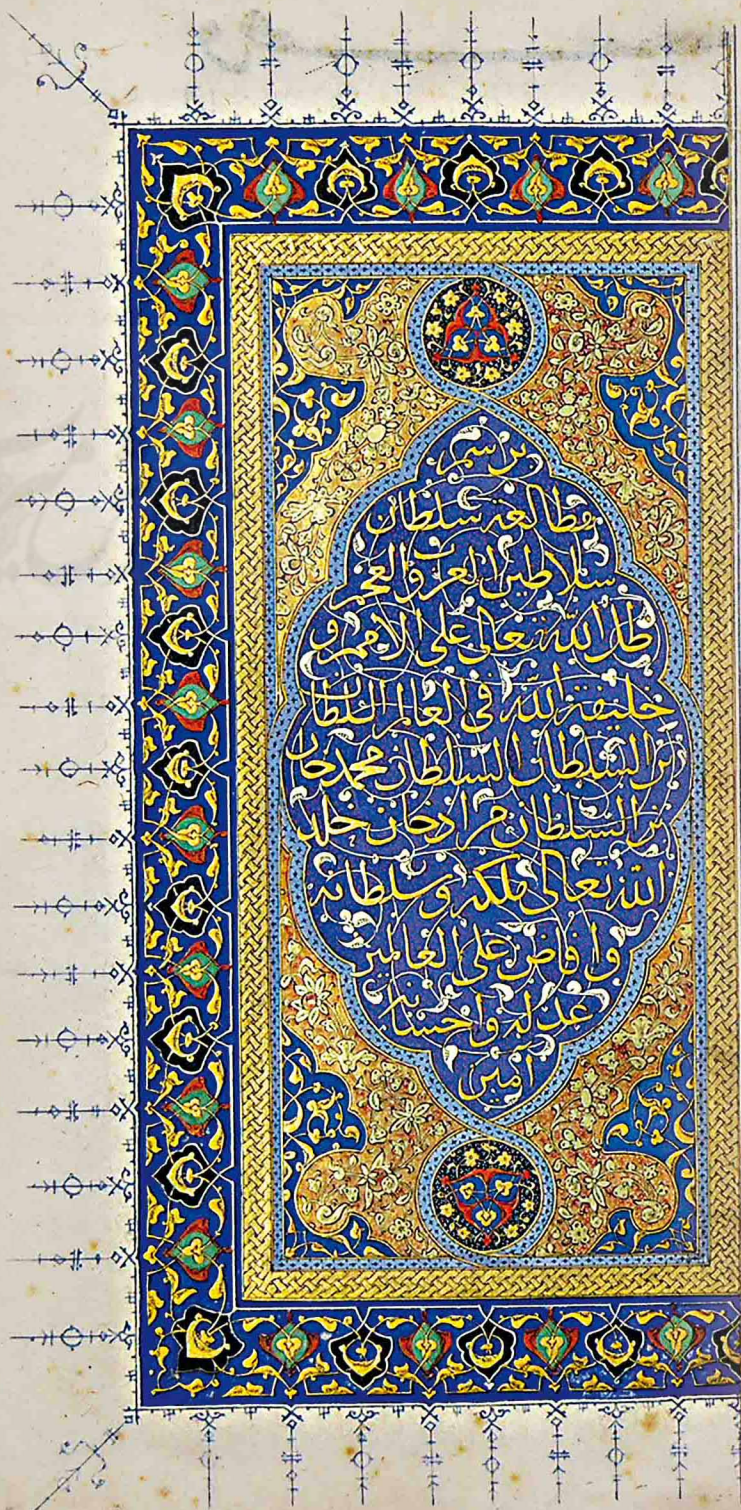 برسم
مطالعة سلطان
سلاطين العرب والعجم
ظل الله تعالى على الامم و
خليفة الله في العالم السلطان
بن السلطان السلطان محمد خان
بن السلطان مراد خان خلد
الله تعالى ملكه وسلطانه
وافاض على العالمين
عدله واحسانه
آمين